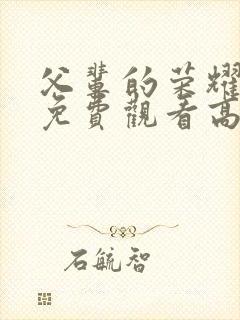 父輩的荣耀
免費觀看高
石毓智